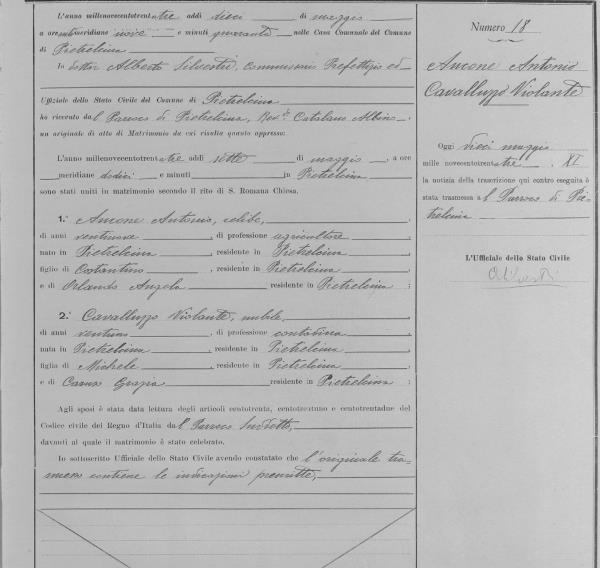 L'anno millenovecentotrentatre addì dieci di maggio
a ore antimeridiane nove e minuti quaranta nella Casa Comunale del Comune
di Pietrelcina
Io dottor Alberto Silvestri, Commissario Prefettizio ed
Uffiziale dello Stato Civile del Comune di Pietrelcina
ho ricevuto dal Parroco di Pietrelcina,
un originale di atto di Matrimonio da cui risulta quanto appresso:
L'anno millenovecentotrentatre addì sette di maggio, a ore
meridiane dodici e minuti in Pietrelcina
sono stati uniti in matrimonio secondo il rito di S. Romana Chiesa.
1.° Aucone Antonio, celibe,
di anni ventinove, di professione agricoltore
nato in Pietrelcina, residente in Pietrelcina
figlio di Costantino, residente in Pietrelcina
e di Orlando Angela residente in Pietrelcina;
2.° Cavalluzzo Violante, nubile,
di anni ventuno, di professione contadina
nata in Pietrelcina, residente in Pietrelcina
figlia di Michele, residente in Pietrelcina
e di Grazia residente in Pietrelcina;
Agli sposi è stata data lettura degli articoli centotrenta, centotrentuno e centotrentadue del
Codice civile del Regno d'Italia dal Parroco suddetto,
davanti al quale il matrimonio è stato celebrato.
Io sottoscritto Uffiziale dello Stato Civile avendo constatato che l'originale tra-
smesso contiene le indicazioni premesse,
Numero 18
Aucone Antonio
Cavalluzzo Violante
Oggi dieci maggio
mille novecentotrentatre XI
la notizia della trascrizione qui contro eseguita è
stata trasmessa al Parroco di Pie-
trelcina
L'Uffiziale dello Stato Civile